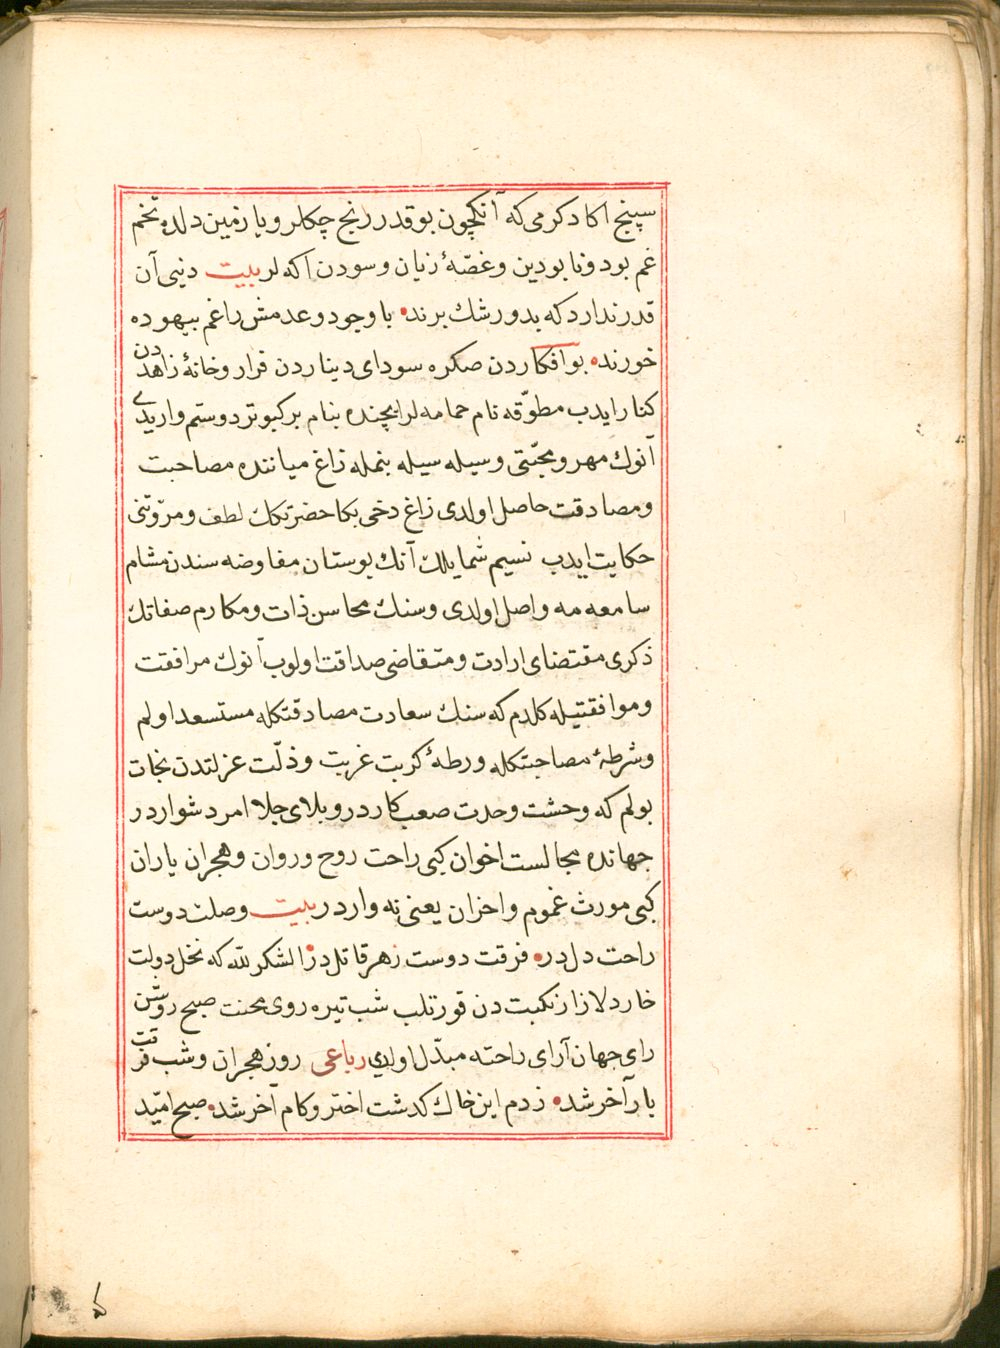 سپنج اكا دكرمى كه آنكچون بو قدر رنج چكالر و يا زمين دلده تخم
غم بود و نا بودين و غصّهٔ زيان و سودن اكه لر بيت دنيى آن
قدر ندارد كه بدو رشك برند • با وجود و عدمش را غم بيهوده
خورند • بو افكاردن صكره سوداى ديناردن فرار و خانهٔ زاهددن
كنار ايدب مطوّقه نام حمامه لر ايچنده بنام بر كبوتر دوستم واريدى
آنوك مهر و محبّتى وسيله سيله بنمله زاغ مياننده مصاحبت
و مصادقت حاصل اولدى زاغ دخى بكا حضرتكك لطف و مرّوتنى
حكايت ايدب نسيم شمايلك آنك بوستان مفاوضه سندن مشام
سامعه مه واصل اولدى و سنك محاسن ذات و مكارم صفاتك
ذكرى مقتضاى ارادت و متقاضى صداقت اولوب آنوك مرافقت
و موافقتيله كلدم كه سنك سعادت مصادقتكله مستسعد اولم
و شرطهٔ مصاحبتكله ورطهٔ كربت غربت و ذلّت عزلتدن نجات
بولم كه وحشت وحدت صعب كاردر و بلاى جلا امر دشواردر
جهانده مجالست اخوان كبى راحت روح و روان و هجران ياران
كبى مورث غموم و احزان يعنى نه واردر بيت وصلت دوست
راحت دل در • فرقت دوست زهر قاتل در • الشكر لله كه نخل دولت
خار دلازار نكبت دن قورتلب شب تيره روى محنت صبح روشن
راى جهان آراى راحته مبدّل اولدى رباعى روز هجران و شب فرقت
يار آخر شد • زدم اين خاك كدشت اختر و كام آخر شد • صبح امّيد